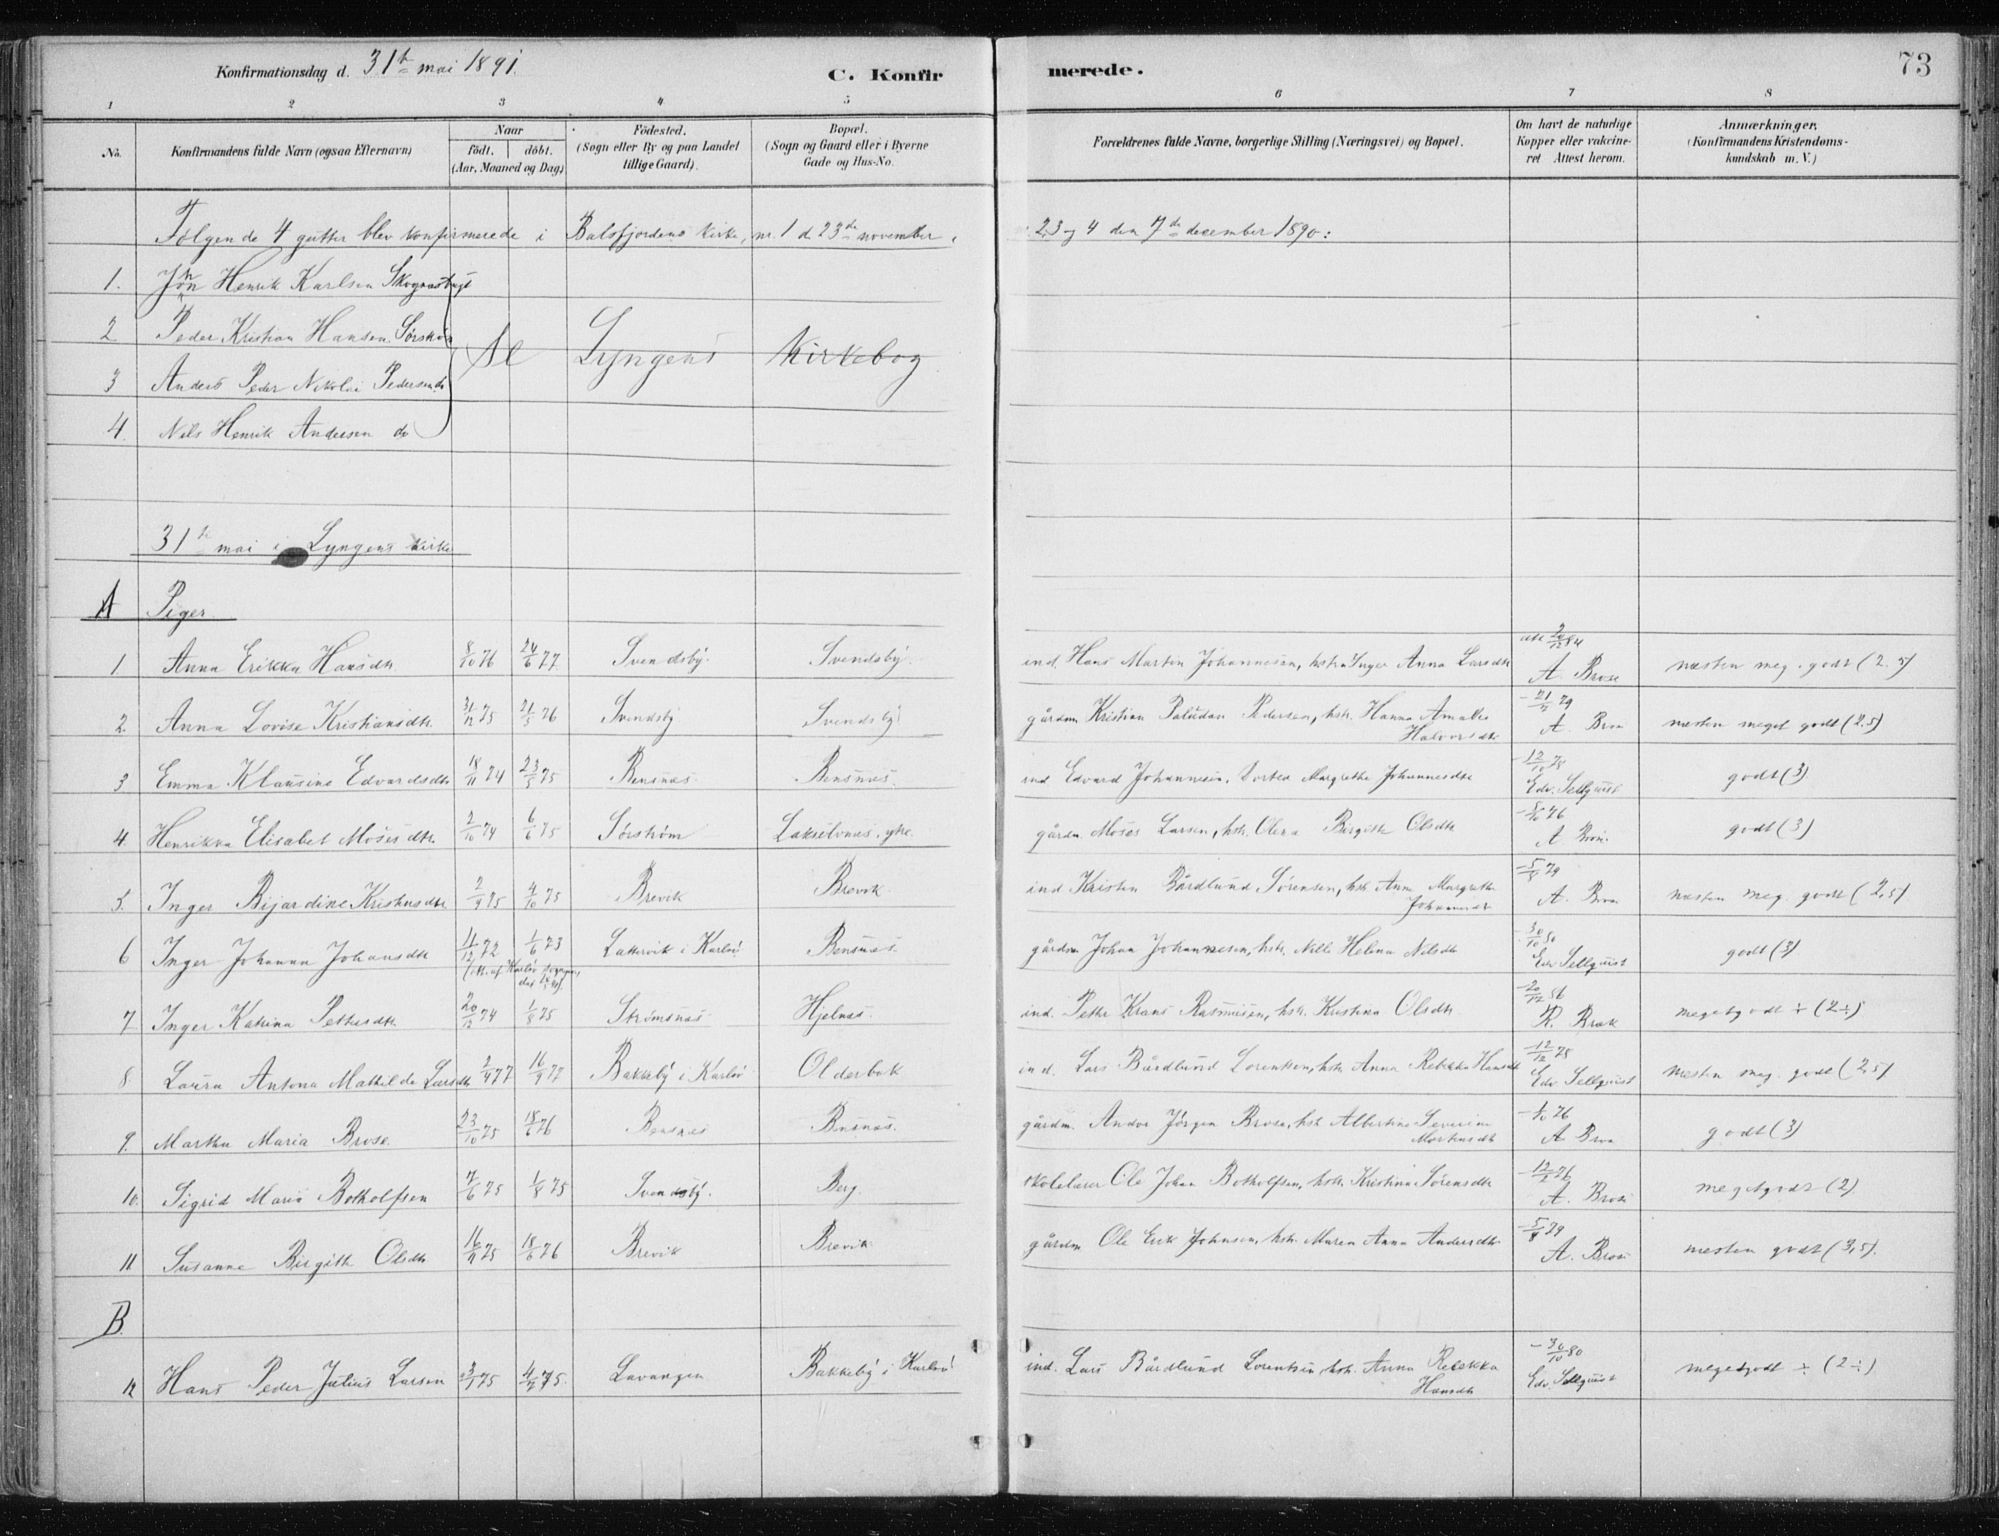 Konfirmationsdag d. 31te mai 1891. C. Konfirmerede. 73
1 2 3 4 5 6 7 8
No. Konfirmandens fulde Navn (ogsaa Efternavn) Naar födt. döbt. (Aar, Maaned og Dag) Födested. (Sogn eller By og paa Landet tillige Gaard). Bopæl. (Sogn og Gaard eller i Byerne Gade og Hus-No. Forældrenes fulde Navne, borgerlige Stilling (Næringsvei) og Bopæl. Om havt de naturlige Kopper eller vakcineret Attest herom. Anmærkninger. (Konfirmandens Kristendomskundskab m. V.)
Følgende 4 gutter blev konfirmerede i Balsfjordens kirke, nr. 1 d 23de november, 2, 3 og 4 den 7de december 1890:
1. John Henrik Karlsen
2 Peder Kristian Hansen
3 Anders Peder Nikolai Pedersen do
4. Nils Henrik Andersen do
Se Lyngens Kirkebog
31te mai i Lyngens kirke
A Piger
1 Anna Erikka Hansdtr. 8/10 76 24/6 77 Svendsby Svendsby ind. Hans Morton Johannesen, hstr. Inger Anna Larsdtr A. Brose næsten meg. godt (2.5)
2. Anna Lovise Kristiansdtr. 31/12 75 21/5 76 Svendsby Svendsby gårdm Kristian Paludan Pedersen, hstr. Hanna Amalie Halvorsdtr A. Brose næsten meget godt (2.5)
3 Emma Klausine Edvardsdtr 18/11 74 23/5 75 Bensnæs Bensnæs ind Edvard Johannesen, Dortea Margrethe Johannesdtr 12/10 75 Edv. Sellquist godt (3)
4. Henrikka Elisabet Mosesdtr. 2/10 74 6/6 75 Sørstrøm gårdm. Moses Larsen, hstr. Olena Birgitte Olsdtr A Brose godt (3)
5. Inger Bijardine Kristensdtr 2/9 75 4/10 75 Brevik Brevik ind Kristen Bårdlund Sørensen, hstr. Anne Margrethe Johannesdtr A. Brose næsten meg. godt (2,5)
6 Inger Johanna Johansdtr 11/12 72 1/6 73 i Karlsø Bensnæs gårdm Johan Johannesen, hstr. Nille Helena Nilsdtr 30/10 80 Edv Sellquist godt (3)
7 Inger Katrina Pettersdtr. 20/12 74 1/8 75 Strømsnæs Hjelnæs ind. Petter Krans Rasmusen, hstr. Kristina Olsdtr 20/12 86 R. Brak megetgodt ÷ (2÷)
8 Laura Antona Mathilde Larsdtr 2/4 77 16/9 77 Bakkeby i Karlsø Olderbak ind. Lars Bårdlund Lorentsen, hstr. Anna Rebekka Hansdtr 12/12 75 Edv Sellquist næsten meg. godt (2,5)
9. Martha Maria Brose. 23/10 75 18/6 76 Bensnes Bensnæs gårdm. Andor Jörgen Brose, hstr Albertine Severine Mortensdtr A Brose godt (3)
10. Sigrid Maria Botholfsen 7/6 75 1/8 75 Svendsby. Berg. skolelærer Ole Johan Botholfsen, hstr. Kristina Sørensdtr A. Brose megetgodt (2)
11 Susanne Birgitte Olsdtr 16/11 75 18/6 76 Brevik Brevik gårdm Ole Erik Johnsen, hstr. Maren Anna Andersdtr A. Brose næsten godt (3,5).
B.
12 Hans Peder Julius Larsen Lavangen Bakkeby i Karlsø ind. Lars Bårdlund Lorentsen, hstr. Anna Rebekka Hansdtr 30/10 80 Edv. Sellquist megetgodt ÷ (2÷)